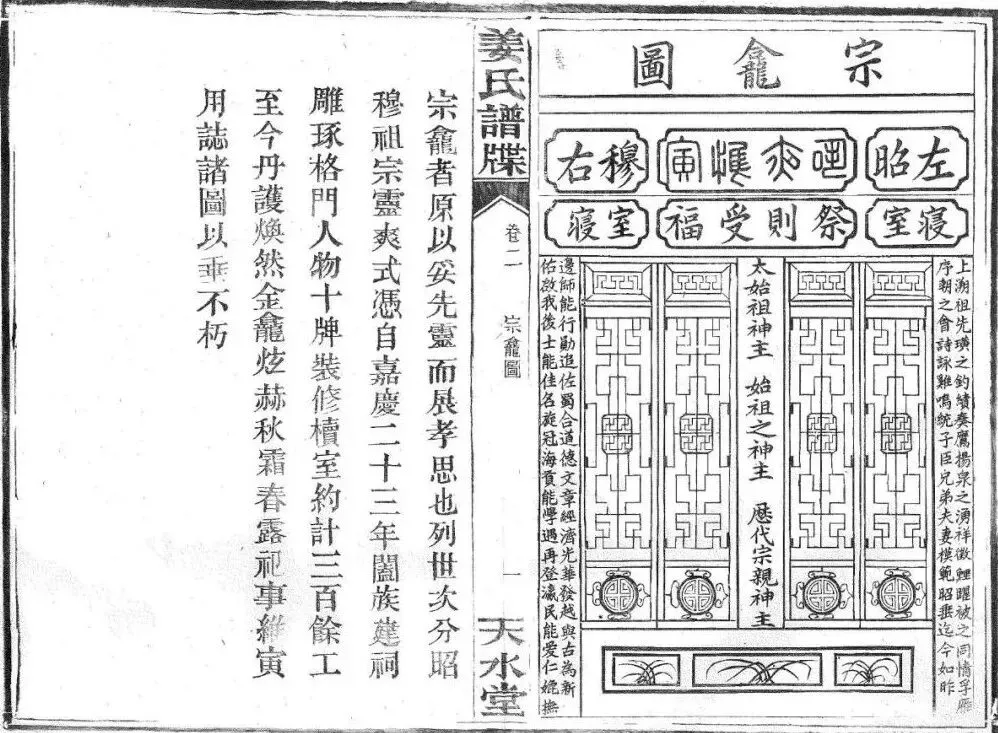 宗龕圖
左昭
夙夜惟寅
穆右
寢室
祭則受福
室寢
上溯祖先璜之釣績奏鷹揚泉之湧祥徵鯉躍被之同情孚雁
序朝之會詩詠雞鳴統子臣兄弟夫妻模範昭垂迄今如昨
太始祖神主　始祖之神主　歷代宗親神主
佑啟我後士能佳名旋冠海貢能學遇再登瀛民能愛仁媲撫
邊師能行勛追佐蜀合道德文章經濟光華發越與古為新
姜氏譜牒
卷二　宗龕圖　一
天水堂
宗龕者原以妥先靈而展孝思也列世次分昭
穆祖宗靈爽式憑自嘉慶二十三年闔族建祠
雕琢格門人物十牌裝修櫝室約計三百餘工
至今丹護煥然金龕炫赫秋霜春露祀事維寅
用誌諸圖以垂不朽